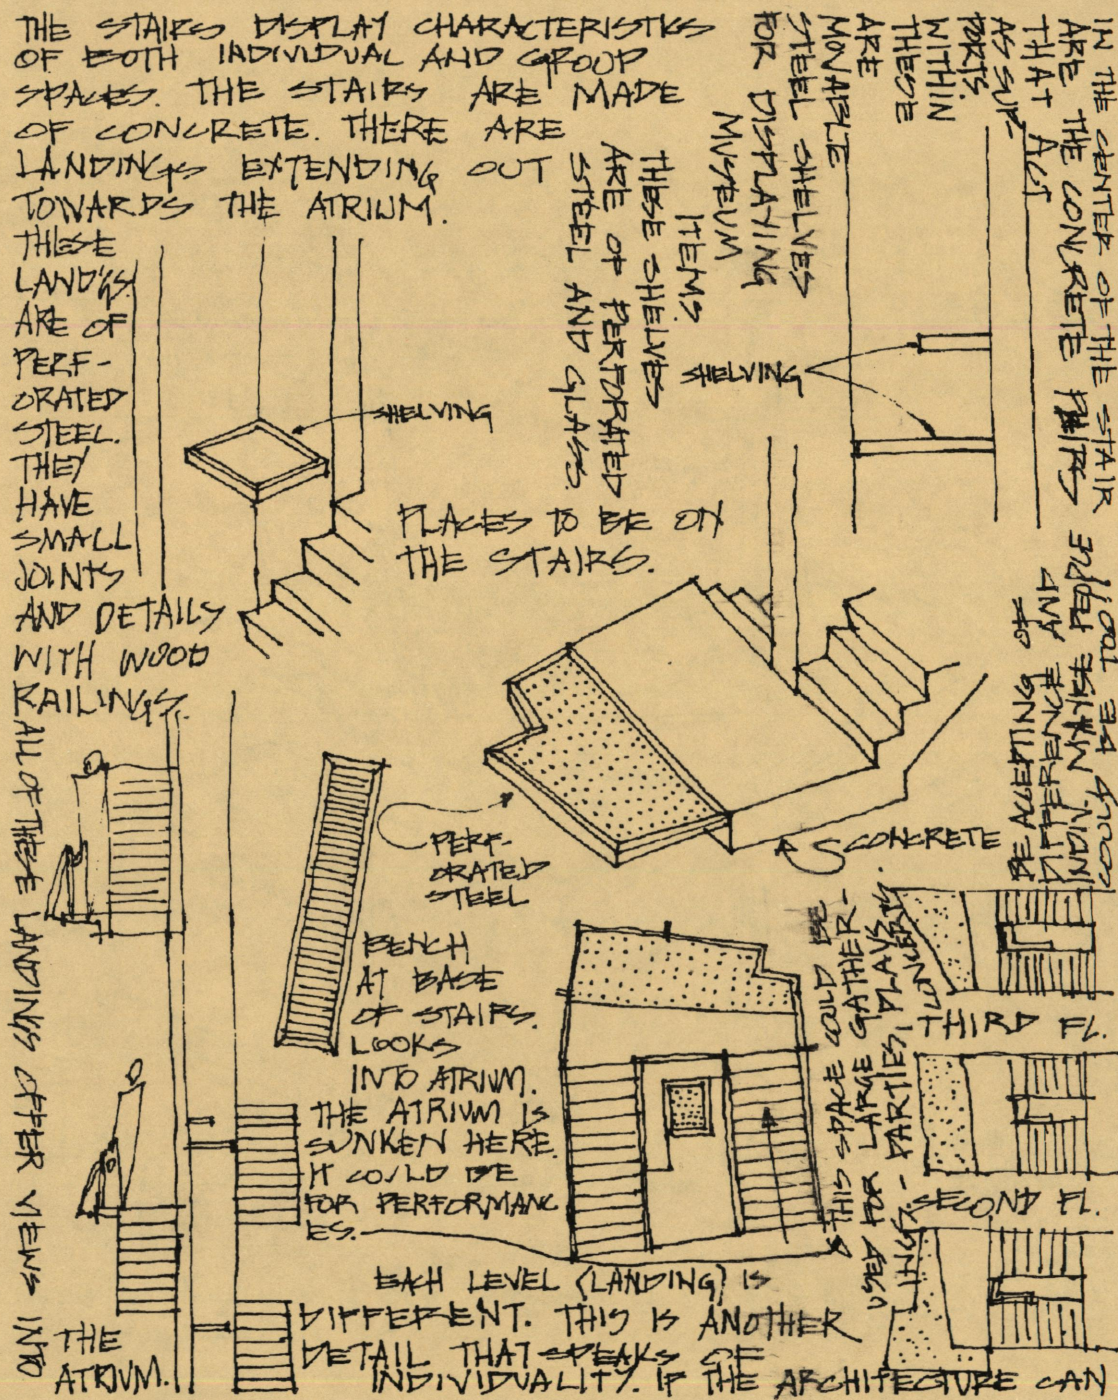 THE STAIRS DISPLAY CHARACTERISTICS
OF BOTH INDIVIDUAL AND GROUP
SPACES. THE STAIRS ARE MADE
OF CONCRETE. THERE ARE
LANDINGS EXTENDING OUT
TOWARDS THE ATRIUM.
THESE
LAND'GS
ARE OF
PERF-
ORATED
STEEL.
THEY
HAVE
SMALL
JOINTS
AND DETAILS
WITH WOOD
RAILINGS.
ALL OF THESE LANDINGS OFFER VIEWS INTO
THE
ATRIUM.
IN THE CENTER OF THE STAIR
ARE THE CONCRETE
THAT ACT
AS SUP-
PORTS.
WITHIN
THESE
ARE
MOVABLE
STEEL SHELVES
FOR DISPLAYING
MUSEUM
ITEMS
THESE SHELVES
ARE OF PERFORATED
STEEL AND GLASS.
SHELVING
SHELVING
PLACES TO BE ON
THE STAIRS.
PERF-
ORATED
STEEL
CONCRETE
BENCH
AT BASE
OF STAIRS.
LOOKS
INTO ATRIUM.
THE ATRIUM IS
SUNKEN HERE.
IT COULD BE
FOR PERFORMANC
ES.
& THIS SPACE COULD BE
USED FOR LARGE GATHER-
INGS - PARTIES, PLAYS,
CONCERTS.
THIRD FL.
SECOND FL.
EACH LEVEL (LANDING) IS
DIFFERENT. THIS IS ANOTHER
DETAIL THAT SPEAKS OF
INDIVIDUALITY. IF THE ARCHITECTURE CAN
BE ACCEPTING OF
DIFFERENCE AND